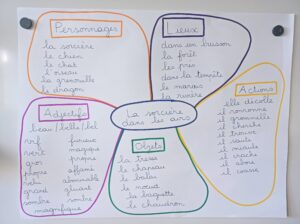 Personnages
la sorcière
le chien
le chat
l'oiseau
la grenouille
le dragon
Lieux
dans un buisson
la forêt
les prés
dans la tempête
le marais
la rivière
Actions
elle décolle
il ronronne
il grommelle
il cherche
il trouve
il saute
il miaule
il crache
il aboie
il casse
Objets
la tresse
le chapeau
le balai
le noeud
la baguette
le chaudron
Adjectifs
beau / belle / bel
vif
vert
gros
propre
poli
grand
sombre
magnifique
furieux
magique
propre
affamé
abominable
gluant
sombre
La sorcière
dans les airs